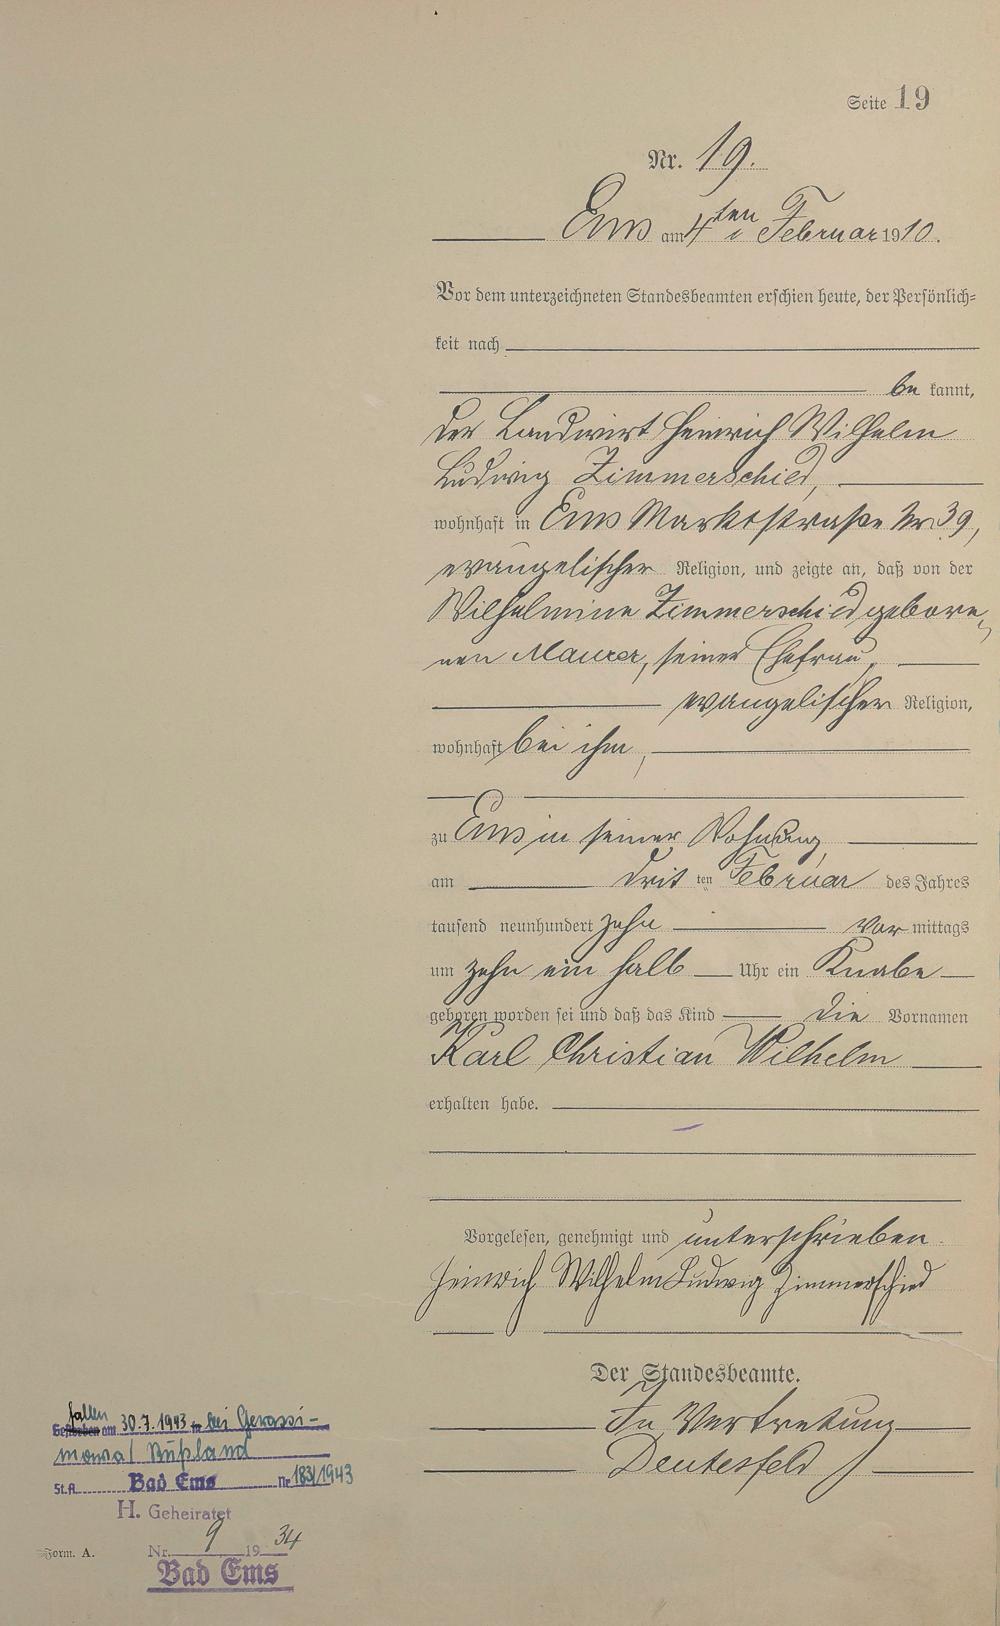 Seite 19
Nr. 19.
Ems am 4ten Februar 1910.
Vor dem unterzeichneten Standesbeamten erschien heute, der Persönlich=
keit nach
be kannt,
der Landwirt Heinrich Wilhelm
Ludwig Zimmerschied,
wohnhaft in Ems Marktstraße Nr 39,
evangelischer Religion, und zeigte an, daß von der
Wilhelmine Zimmerschied gebore-
nen Maurer, seiner Ehefrau,
evangelischer Religion,
wohnhaft bei ihm,
zu Ems in seiner Wohnung,
am drit ten Februar des Jahres
tausend neunhundert zehn vor mittags
um zehn ein halb Uhr ein Knabe
geboren worden sei und daß das Kind die Vornamen
Karl Christian Wilhelm
erhalten habe.
Vorgelesen, genehmigt und unterschrieben.
Heinrich Wilhelm Ludwig Zimmerschied
Der Standesbeamte.
In Vertretung
Deutesfeld
Gefallen am 30.7.1943 bei Gerassi-
mowa/ Rußland
St.A. Bad Ems Nr 183/1943
H. Geheiratet
Nr. 9 1934
Bad Ems
Form. A.